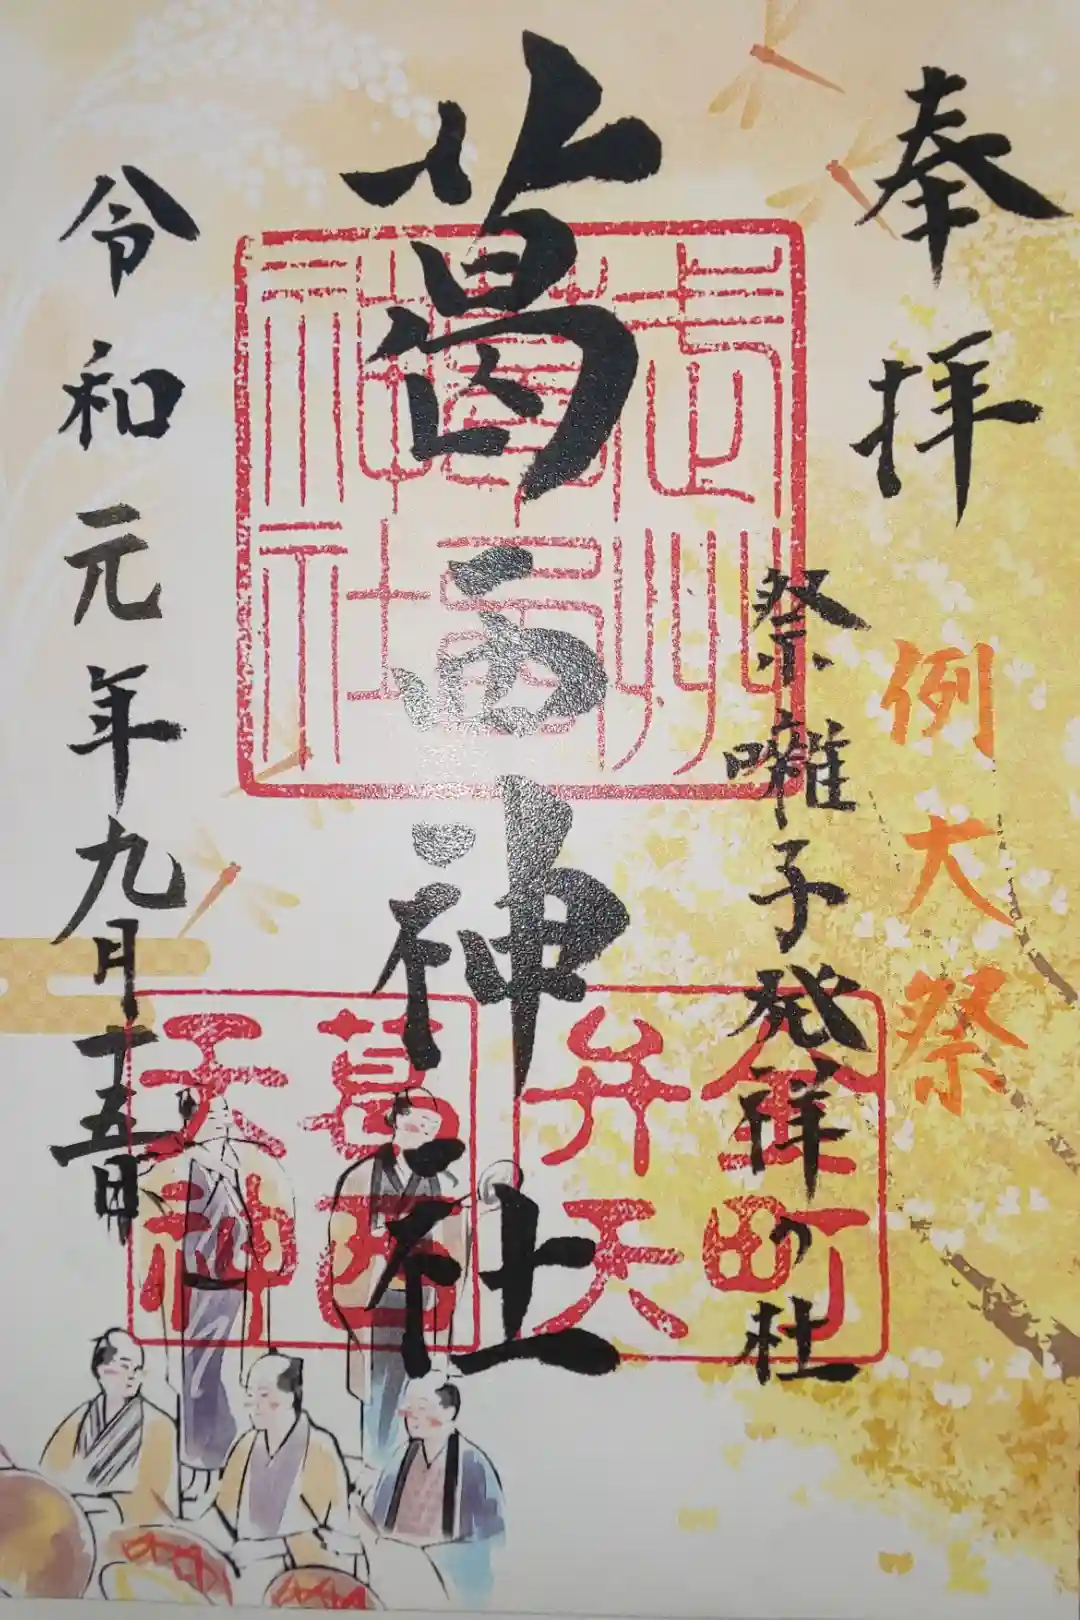 奉拝
例大祭
祭囃子発祥の杜
葛西神社
令和元年九月十五日
武州
葛西
神社
金町
弁天
葛西
天神